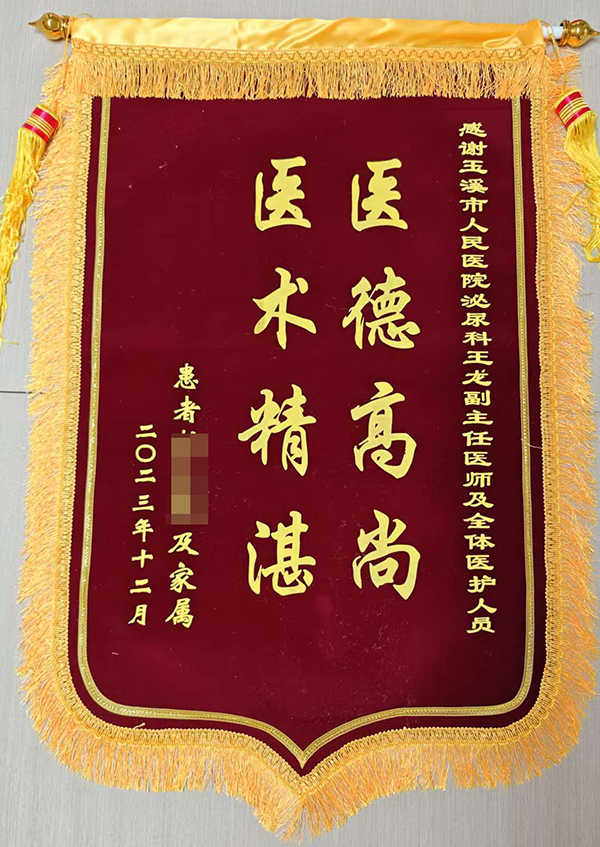 感谢玉溪市人民医院泌尿科王龙副主任医师及全体医护人员
医德高尚
医术精湛
患者
及家属
二〇二三年十二月